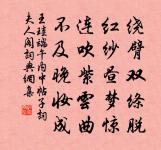 绕臂双条脱
红纱昼梦惊
连吹紫云曲
不及晚妆成
王珪端午内中帖子词
夫人阁词典网集